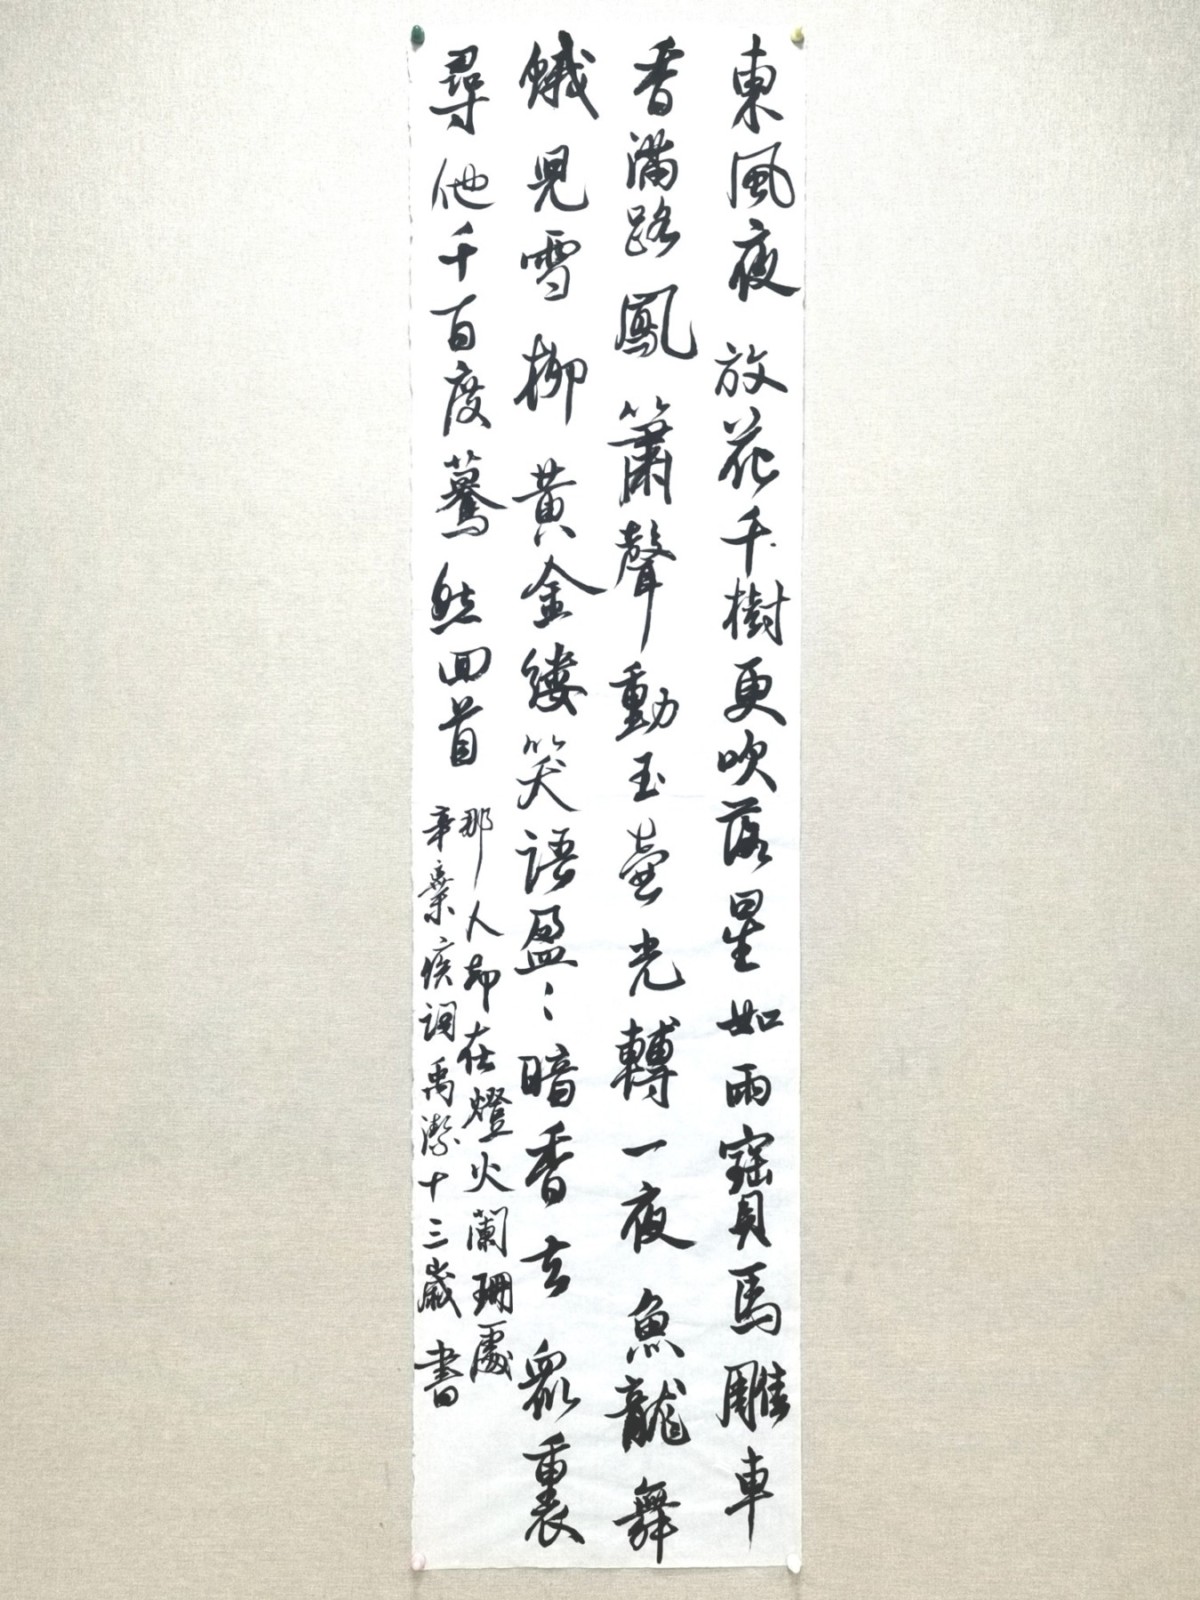 東風夜放花千樹更吹落星如雨寶馬雕車
香滿路鳳簫聲動玉壺光轉一夜魚龍舞
蛾兒雪柳黃金縷笑語盈〻暗香去眾裏
尋他千百度驀然回首
那人却在燈火蘭珊處
辛棄疾詞禹潔十三歲書